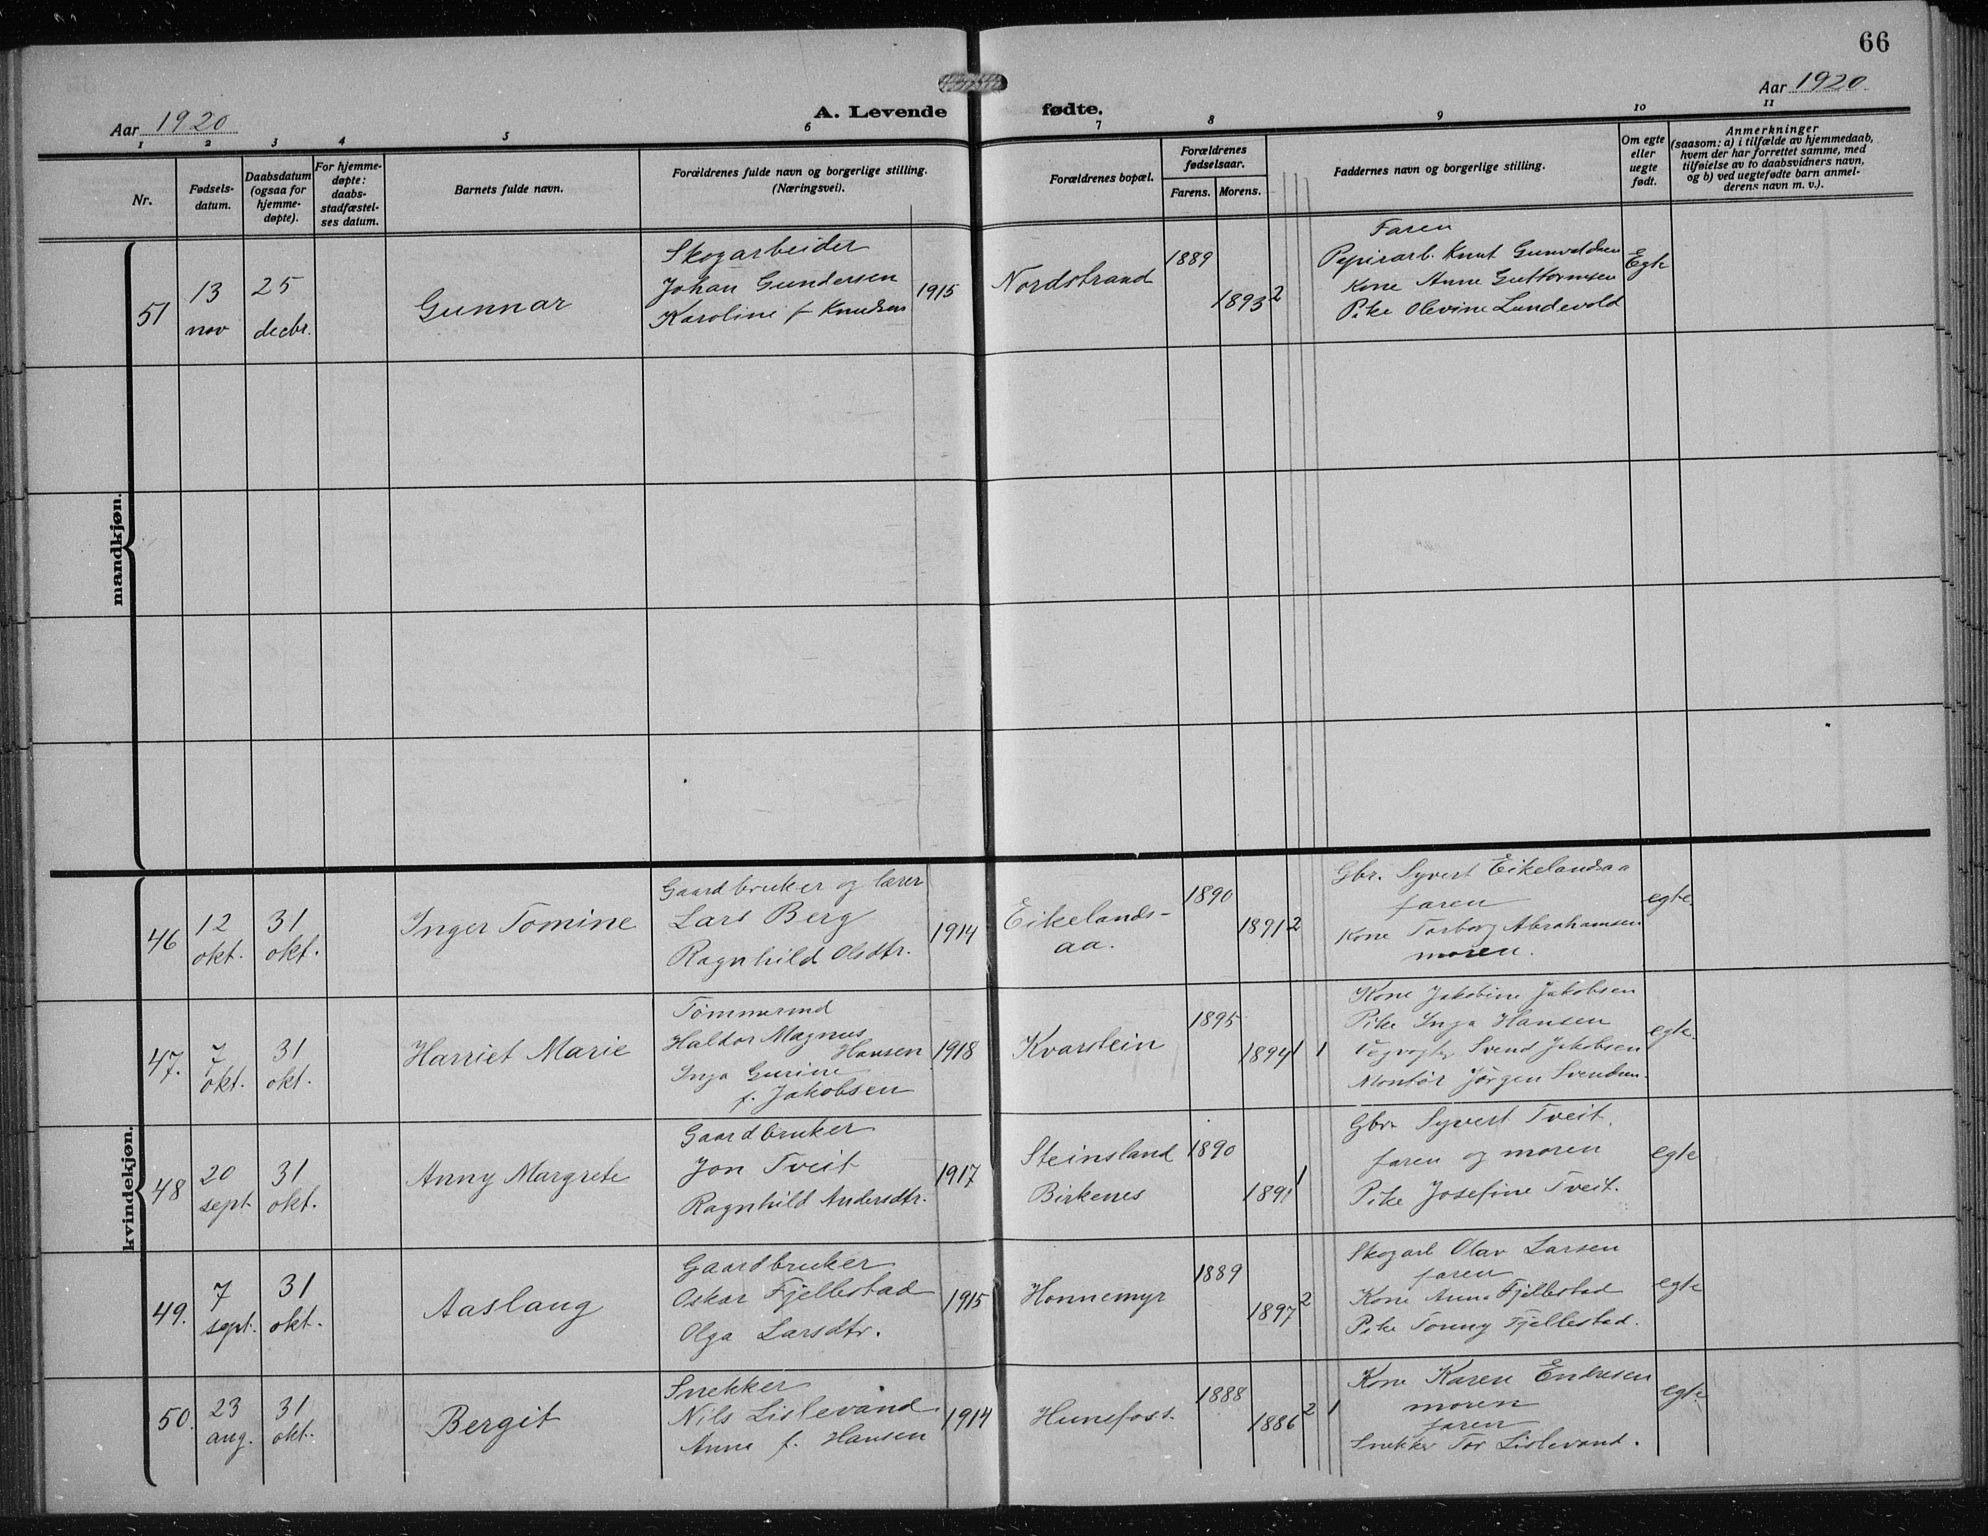 66
Aar 1920
A. Levende fødte.
Aar 1920
1 2 3 4 5 6 7 8 9 10 11
Nr.
Fødsels-
datum.
Daabsdatum
(ogsaa for
hjemme-
døpte).
For hjemme-
døpte:
daabs-
stadfæstel-
ses datum.
Barnets fulde navn.
Forældrenes fulde navn og borgerlige stilling.
(Næringsvei).
Forældrenes bopæl.
Forældrenes
fødselsaar.
Farens. Morens.
Faddernes navn og borgerlige stilling.
Om egte
eller
uegte
født.
Anmerkninger
(saasom: a) i tilfælde av hjemmedaab,
hvem der har forrettet samme, med
tilføielse av to daabsvidners navn,
og b) ved uegtefødte barn anmel-
derens navn m. v.).
mandkjøn.
51
13
nov
25
decbr.
Gunnar
Skogarbeider
Johan Gundersen
Karoline f Knudsen
1915
Nordstrand
1889
1893 2
Faren
Papirarb. Knut Gunvaldsen
Kone Anne Guttormsen
Pike Olevine Lundevold
Egte
kvindekjøn.
46
12
okt.
31
okt.
Inger Tomine
Gaardbruker og lærer
Lars Berg
Ragnhild Olsdtr.
1914
Eikelands-
aa.
1890
1891 2
Gbr. Syvert Eikelandsaa
faren
Kone Torborg Abrahamsen
moren.
egte
47.
7
okt.
31
okt.
Harriet Marie
Tømmermd
Haldor Magnus
Hansen
Inga Gurine
f. Jakobsen
1918
Kvarstein
1895
1894 1 1
Kone Jakobine Jakobsen
Pike Inga Hansen
Vegvogter Svend Jakobsen
Montør Jørgen Svendsen
egte
48
20
sept.
31
okt.
Anny Margrete
Gaardbruker
Jon Tveit
Ragnhild Andersdtr.
1917
Steinsland
Birkenes
1890
1891 1
Gbr Syvert Tveit.
faren og moren
Pike Josefine Tveit.
egte
49.
7
sept.
31
okt.
Aaslaug
Gaardbruker
Oskar Fjellestad
Olga Larsdtr.
1915
Honnemyr
1889
1897 2
Skogarb Olav Larsen
faren
Kone Anna Fjellestad
Pike Tonny Fjellestad.
egte
50.
23
aug.
31
okt.
Bergit
Snekker
Nils Lislevand
Anne f. Hansen
1914
Hunsfoss.
1888
1886 2 1
Kone Karen Endresen
moren
faren
Snekker Tor Lislevand.
egte